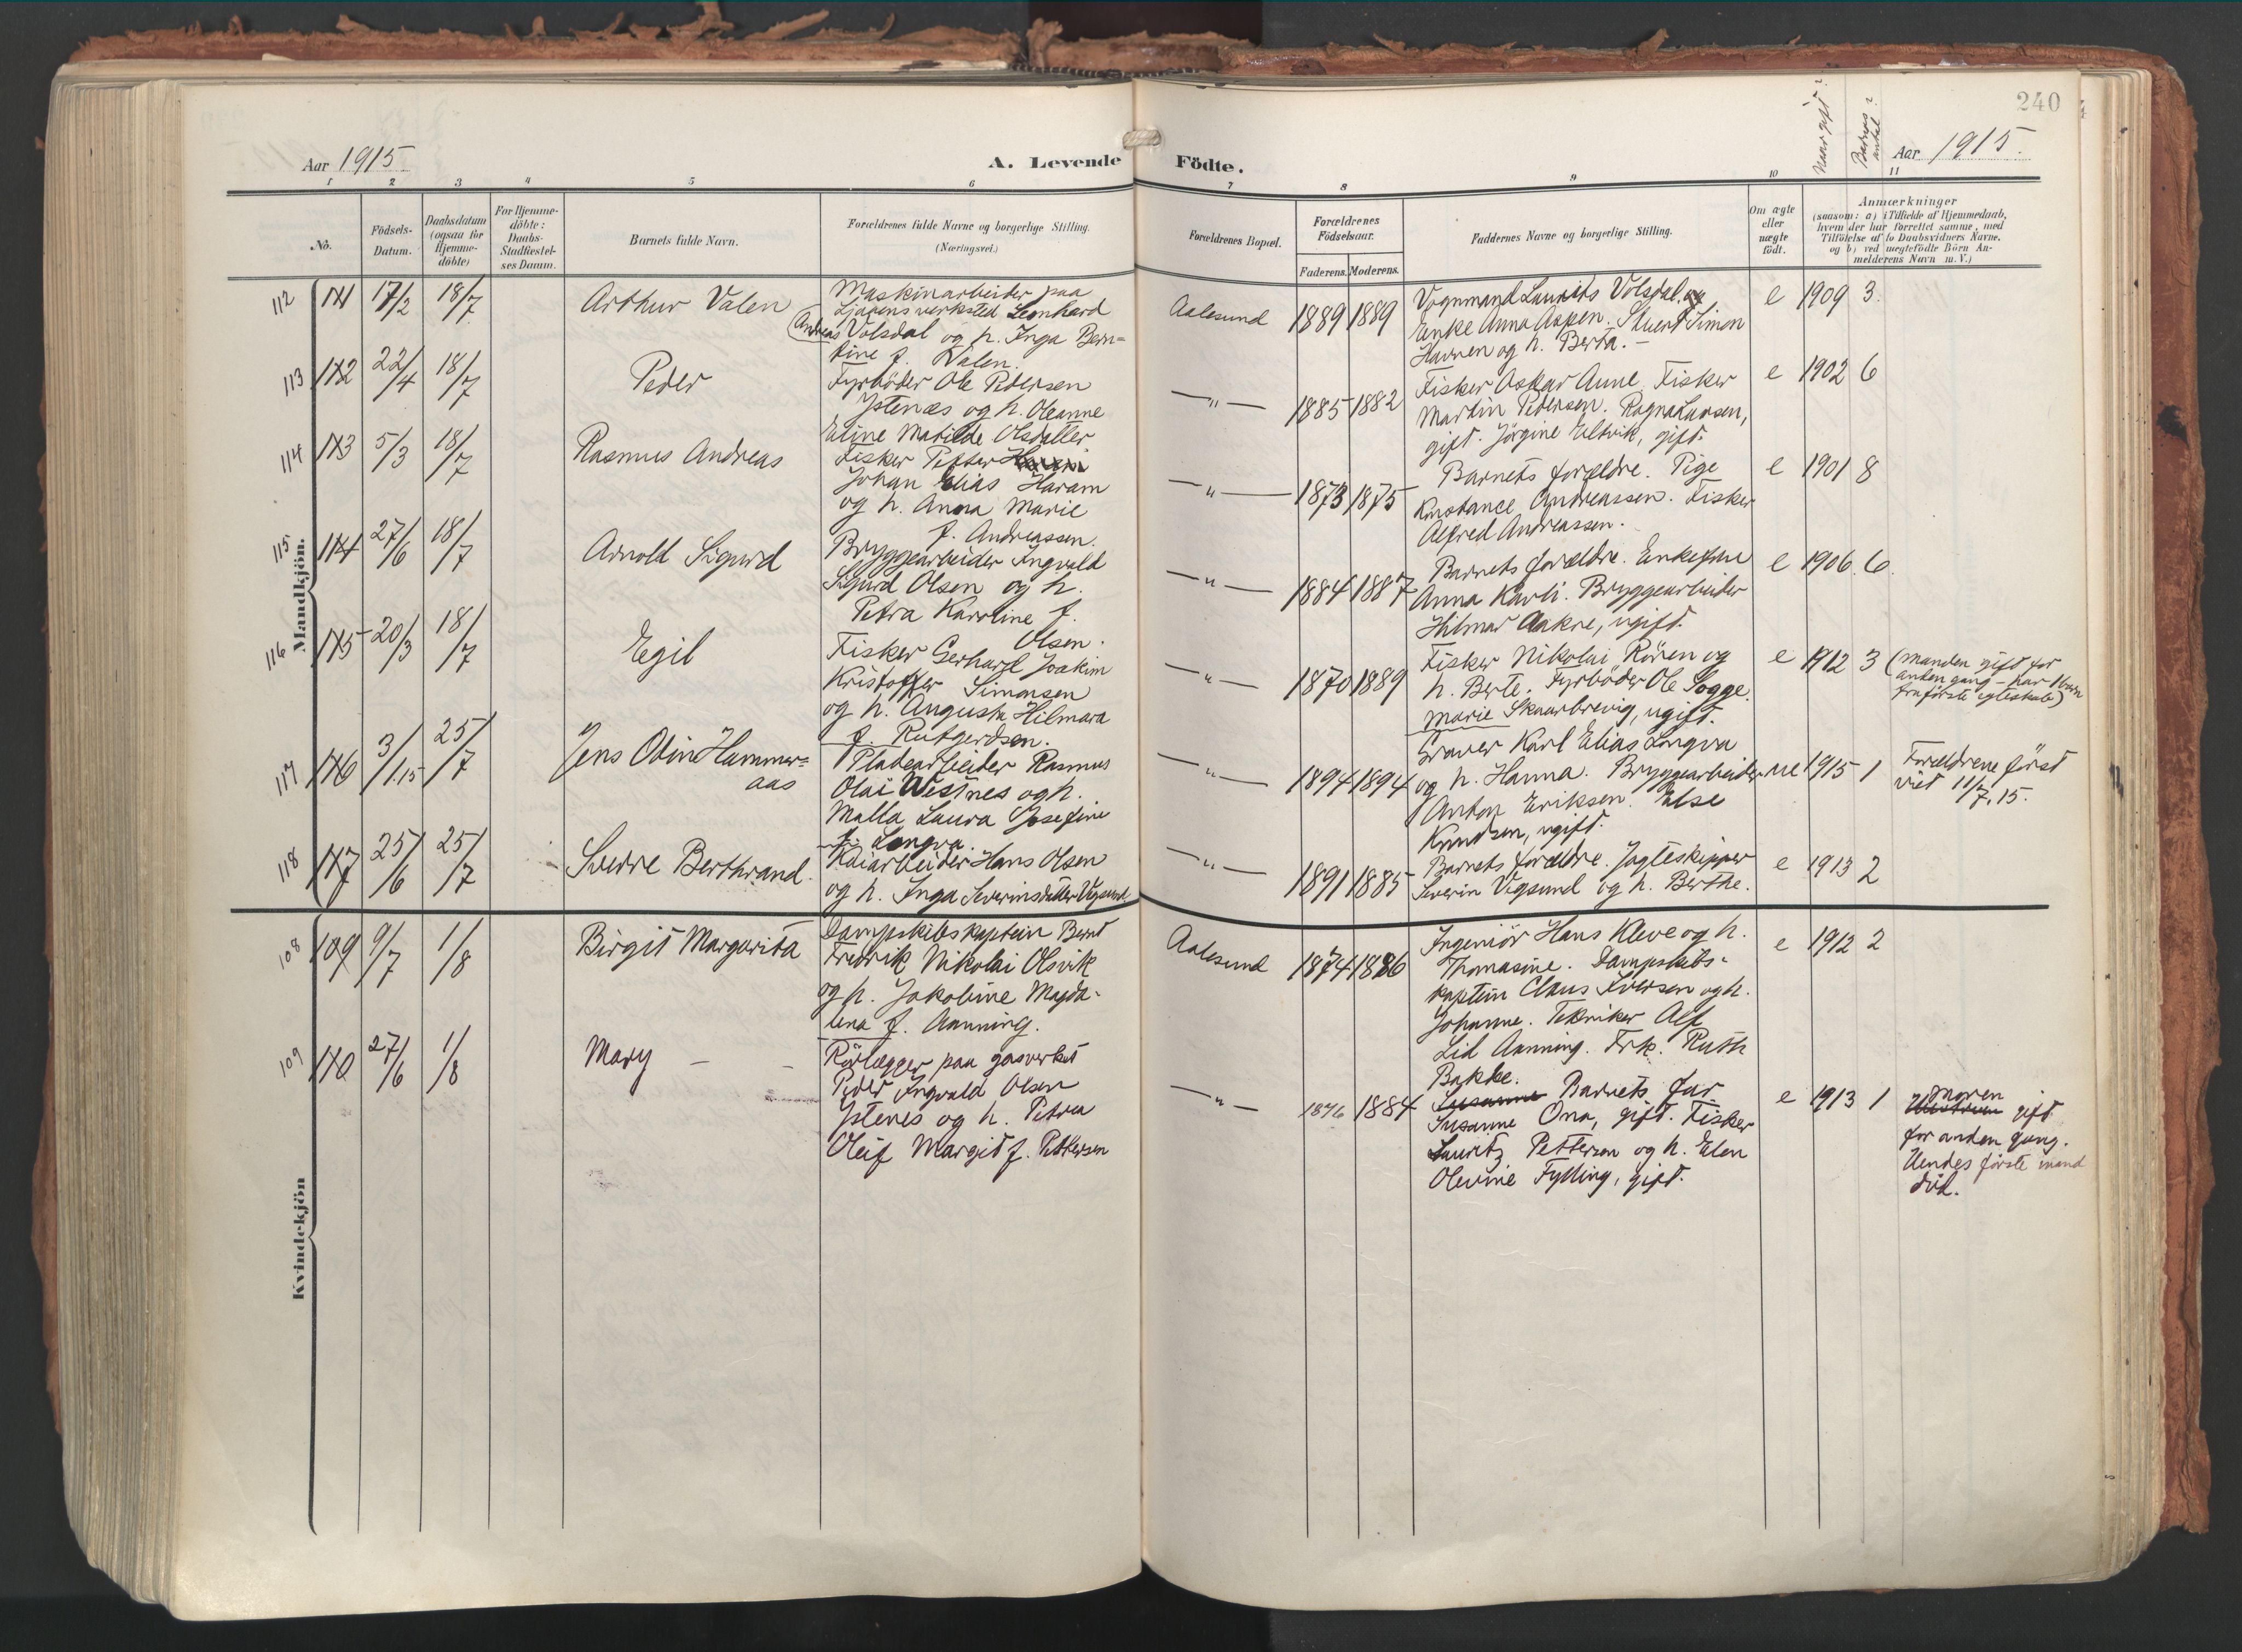 240
Naar gift?
Barnets antal?
Aar 1915
A. Levende Födte.
Aar 1915.
1 2 3 4 5 6 7 8 9 10 11
No.
Födsels-
Datum.
Daabsdatum
(ogsaa for
Hjemme-
döbte)
For Hjemme-
döbte:
Daabs-
Stadfæstel-
ses Datum.
Barnets fulde Navn.
Forældrenes fulde Navne og borgerlige Stilling.
(Næringsvei.)
Forældrenes Bopæl.
Forældrenes
Födselsaar.
Faderens. Moderens.
Faddernes Navne og borgerlige Stilling.
Om ægte
eller
uægte
födt.
Anmærkninger
(saasom: a) i Tilfælde af Hjemmedaab,
hvem der har forrettet samme, med
Tilföielse af to Daabsvidners Navne,
og b) ved uægtefödte Börn An-
melderens Navn m. V.)
Mandkjön.
112 111 17/2 18/7
Arthur Valen
Maskinarbeider paa
Leonhard
(Andreas) Volsdal og h. Inga Bern=
tine f. Valen.
Aalesund 1889 1889
Vognmand Laurits Volsdal og
Enke Anna Aspen. Stuert Simon
Havnen og h. Berta. –
e 1909 3.
113 112 22/4 18/7
Peder
Fyrböder Ole Pedersen
Ystenæs og h. Oleanne
Eline Matilde Olsdatter
—„— 1885 1882
Fisker Oskar Aune. Fisker
Martin Pedersen. Ragna Larsen,
gift. Jörgine Eltvik, gift.
e 1902 6
114 113 5/3 18/7
Rasmus Andreas
Fisker Petter
Johan Elias Haram
og h. Anna Marie
f. Andreassen.
—„— 1873 1875
Barnets forældre. Pige
Konstance Andreassen. Fisker
Alfred Andreassen.
e 1901 8
115 114 27/6 18/7
Arnold Sigurd
Bryggearbeider Ingvald
Sigurd Olsen og h.
Petra Karoline f.
Olsen.
—„— 1884 1887
Barnets forældre. Enkefrue
Anna Karli. Bryggearbeider
Hilmar Aakre, ugift.
e 1906. 6.
116 115 20/3 18/7
Egil
Fisker Gerhard Joakim
Kristoffer Simonsen
og h. Augusta Hilmara
f. Rutgerdsen.
—„— 1870 1889
Fisker Nikolai Rören og
h. Berte. Fyrböder Ole Sogge.
Marie Skaarbrevig, ugift.
e 1912 3
(Manden gift for
anden gang – har 1 barn
fra förste egteskab)
117 116 3/1.15 25/7
Jens Odin Hammer=
aas
Pladearbeider Rasmus
Olai Westnes og h.
Malla Laura Josefine
f. Longva.
—„— 1894 1894
Graver Karl Elias Longva
og h. Hanna. Bryggearbeider
Anton Eriksen. Else
Knudsen, ugift.
ue 1915 1
Forældrene först
viet 11/7.15.
118 117 25/6 25/7
Sverre Berthrand.
Kaiarbeider Hans Olsen
og h. Inga Severinsdatter Vigsund
—„— 1891 1885
Barnets forældre. Jagteskipper
Severin Vigsund og h. Berthe.
e 1913 2
Kvindekjön
108 109 9/7 1/8
Birgit Margarita
Dampskibskaptein Bernt
Fredrik Nikolai Olsvik
og h. Jakobine Magda-
lena f. Aanning.
Aalesund 1874 1886
Ingeniör Hans Kleve og h.
Thomasine. Dampskibs-
kaptein Claus Iversen og h.
Johanne. Tekniker Alf
Lid Aanning. Frk. Ruth
Bakke.
e 1912 2
109 110 27/6 1/8
Mary –
Rörlægger paa gasverket
Peder Ingvald Olsen
Ystenes og h. Petra
Oleif Margit f. Pettersen
—„— 1876 1884
Susanne Barnets far.
Susanne Ona, gift. Fisker
Lauritz Pettersen og h. Elen
Olevine Fylling, gift.
e 1913 1
Moren
gift
for anden gang.
Hendes förste mand
död.